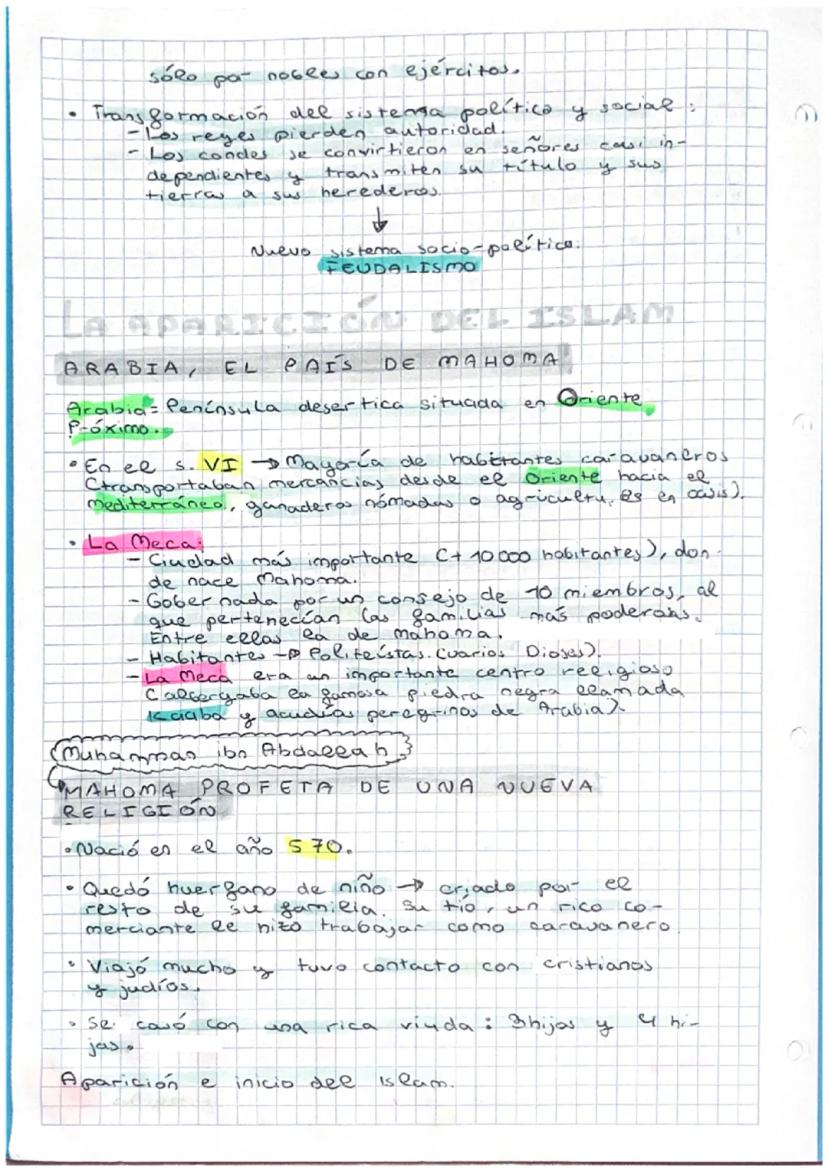 sólo por nobles con ejércitos.
• Transformación del sistema político y social:
- Los reyes pierden autoridad.
- Los condes se convirtieron en señores casi in-
dependientes y transmiten su título y sus
tierras a sus herederos.
↓
Nuevo sistema socio-político.
FEUDALISMO
LA APARICIÓN DEL ISLAM
ARABIA, EL PAÍS DE MAHOMA
Arabia = Península desertica situada en Oriente
Próximo.
• En el s. VI → Mayoría de habitantes caravaneros
(transportaban mercancias desde el Oriente hacia el
mediterráneo, ganaderos nómadas o agricultures en oasis).
• La Meca:
- Ciudad más importante (+ 10 000 habitantes), don-
de nace Mahoma.
- Gobernada por un consejo de 10 miembros, al
que pertenecían las familias más poderosas.
Entre ellas la de mahoma.
- Habitantes → Politeístas. (varios Dioses).
- La Meca era un importante centro religioso
(albergaba la famosa piedra negra llamada
Kaaba y acudías peregrinos de Arabia).
Muhammas ibn Abdallah
MAHOMA PROFETA DE UNA NUEVA
RELIGIÓN
• Nació en el año 570.
• Quedó huerfano de niño → criado por el
resto de su familia. Su tío, un rico co-
merciante le hizo trabajar como caravanero.
• Viajó mucho y tuvo contacto con cristianos
y judíos.
• Se casó con una rica viuda: 3 hijos y 4 hi-
jas.
Aparición e inicio del Islam.